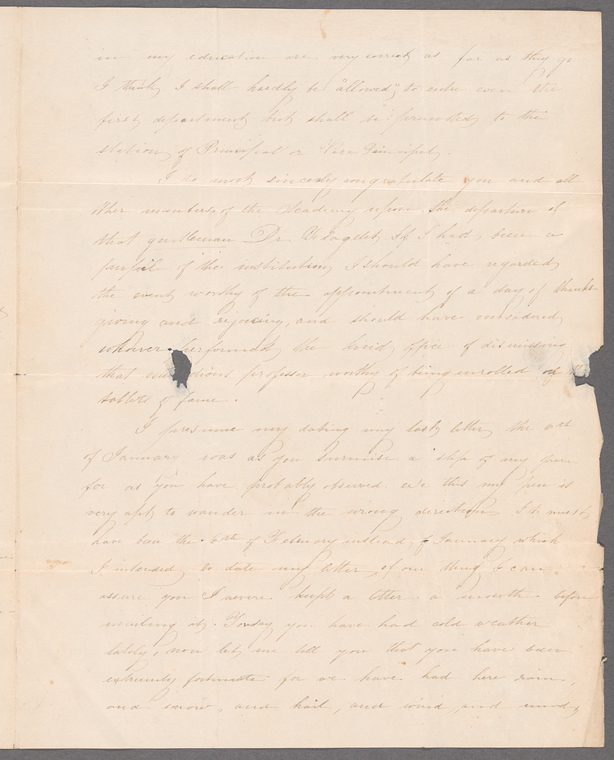 in my education are my correct as far as they go
I think I shall hardly be "allowed" to enter even the
first department but shall be permitted to the
station of Principal or Vice Principal.
I do most sincerely congratulate you and all
other members of the Academy upon the departure of
that gentleman Dr. If I had been a
pupil of the institution I should have regarded
the event worthy of the appointment of a day of thanks
giving and rejoicing, and should have considered
whoever performed the kind office of dismissing
that professor worthy of being enrolled on
tablets of fame.
I presume my dating my last letter the 6th
of January was as you surmise a slip of my pen
for as you have probably observed ere this my pen is
very apt to wander in the wrong direction. It must
have been the 6th of February instead of January which
I intended to date my letter, of one thing I can
assure you I never kept a letter a month before
sending it. To day you have had cold weather
lately, now let me tell you that you have been
extremely fortunate for we have had here rain,
and snow, and hail, and wind, and mud,